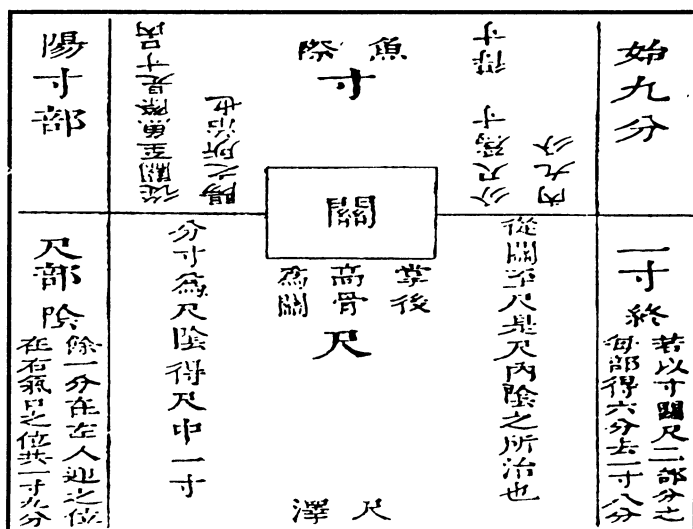 始九分
分尺為寸得寸
內九分
魚際
寸
從關至魚際是寸口內
陽之所治也
陽寸部
關
一寸終
若以寸關尺三部分之
每部得六分共一寸八分
從關至尺是尺內陰之所治也
掌後
高骨
為關
尺
尺澤
分寸為尺陰得尺中一寸
尺部陰
除一分在左人迎之位
在右氣口之位共一寸九分